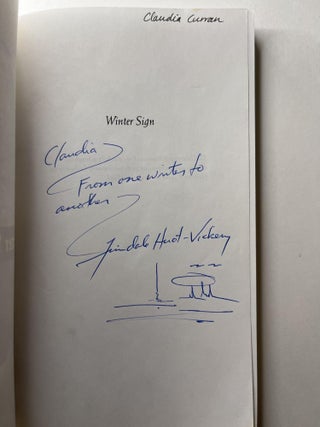 Claudia Curran
Winter Sign
Claudia
From one writer to
another
Jim dale Huot-Vickery